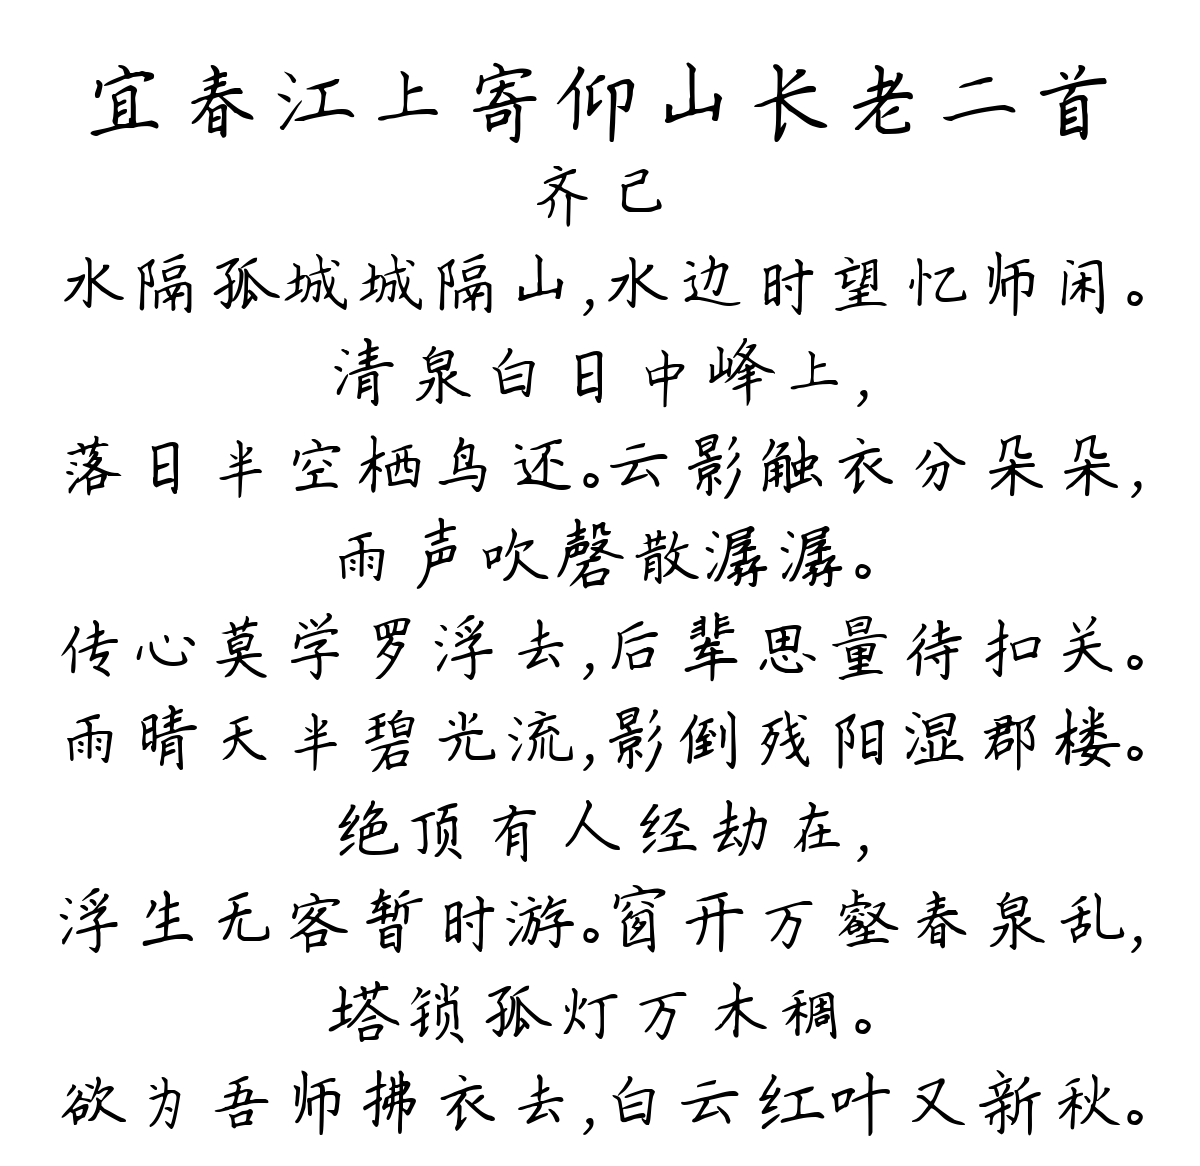 宜春江上寄仰山长老二首
齐己
水隔孤城城隔山,水边时望忆师闲。
清泉白日中峰上,
落日半空栖鸟还。云影触衣分朵朵,
雨声吹磬散潺潺。
传心莫学罗浮去,后辈思量待扣关。
雨晴天半碧光流,影倒残阳湿郡楼。
绝顶有人经劫在,
浮生无客暂时游。窗开万壑春泉乱,
塔锁孤灯万木稠。
欲为吾师拂衣去,白云红叶又新秋。